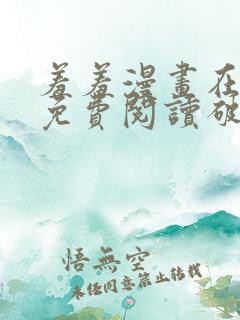 羞羞漫畫在
免費閱讀破
悟無空
未經同意禁止轉載